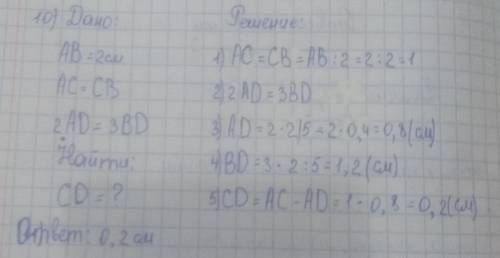 10) Дано:
AB = 2 см
AC = CB
2AD = 3BD
Найти:
CD = ?
Решение:
1) AC = CB = AB : 2 = 2 : 2 = 1
2) 2AD = 3BD
3) AD = 2 · 2/5 = 2 · 0,4 = 0,8 (см)
4) BD = 3 · 2 : 5 = 1,2 (см)
5) CD = AC - AD = 1 - 0,8 = 0,2 (см)
Ответ: 0,2 см